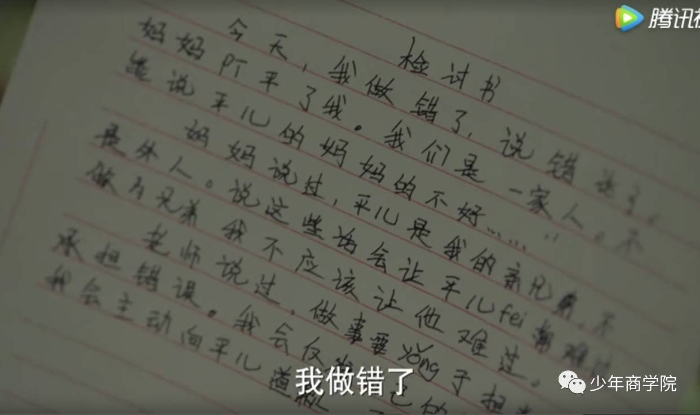 腾讯
检讨书
今天，我做错了，说错话了。
妈妈PT平了我。我们是一家人。不
能说平儿的妈妈的不好……
妈妈说过，平儿是我的亲兄弟，不
是外人。说这些话会让平儿fei常难过
做为兄弟我不应该让他难过。
老师说过，做事要yǒng于担当
承担错误。我会
我会主动向平儿道
我做错了
少年商学院